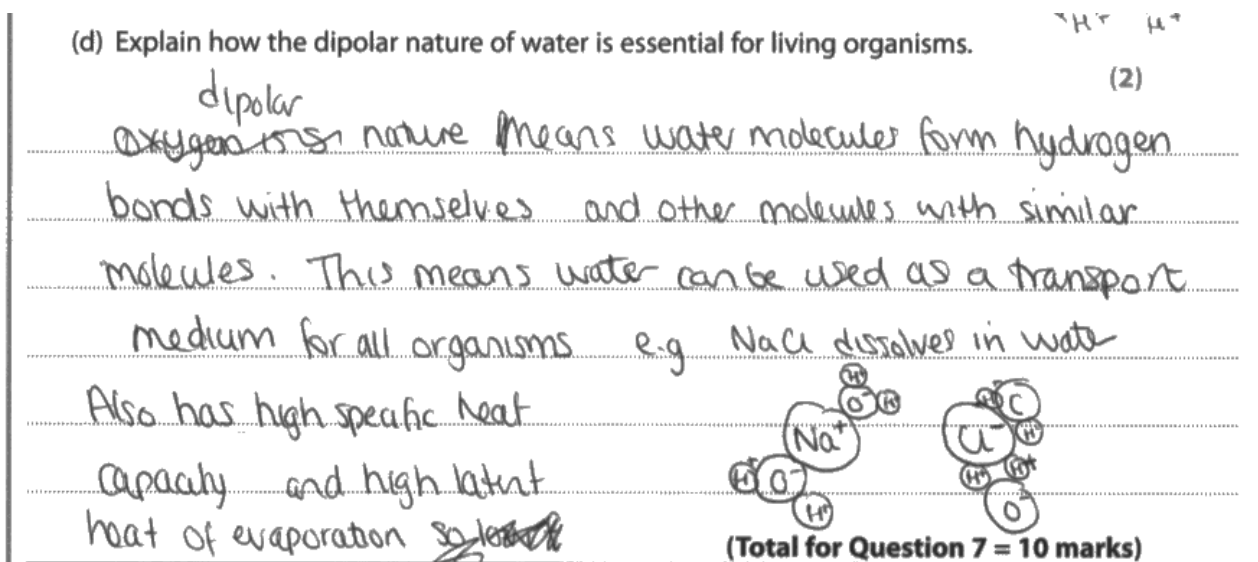 H+ H+
(d) Explain how the dipolar nature of water is essential for living organisms.
(2)
dipolar
nature means water molecules form hydrogen
bonds with themselves and other molecules with similar
molecules. This means water can be used as a transport
medium for all organisms e.g NaCl dissolves in wate
Also has high specific heat
capacity and high latent
heat of evaporation so
H+
O- H+
Na+
H+ O-
H+
H+ C
Cl- H+
H+ H+
O-
(Total for Question 7 = 10 marks)